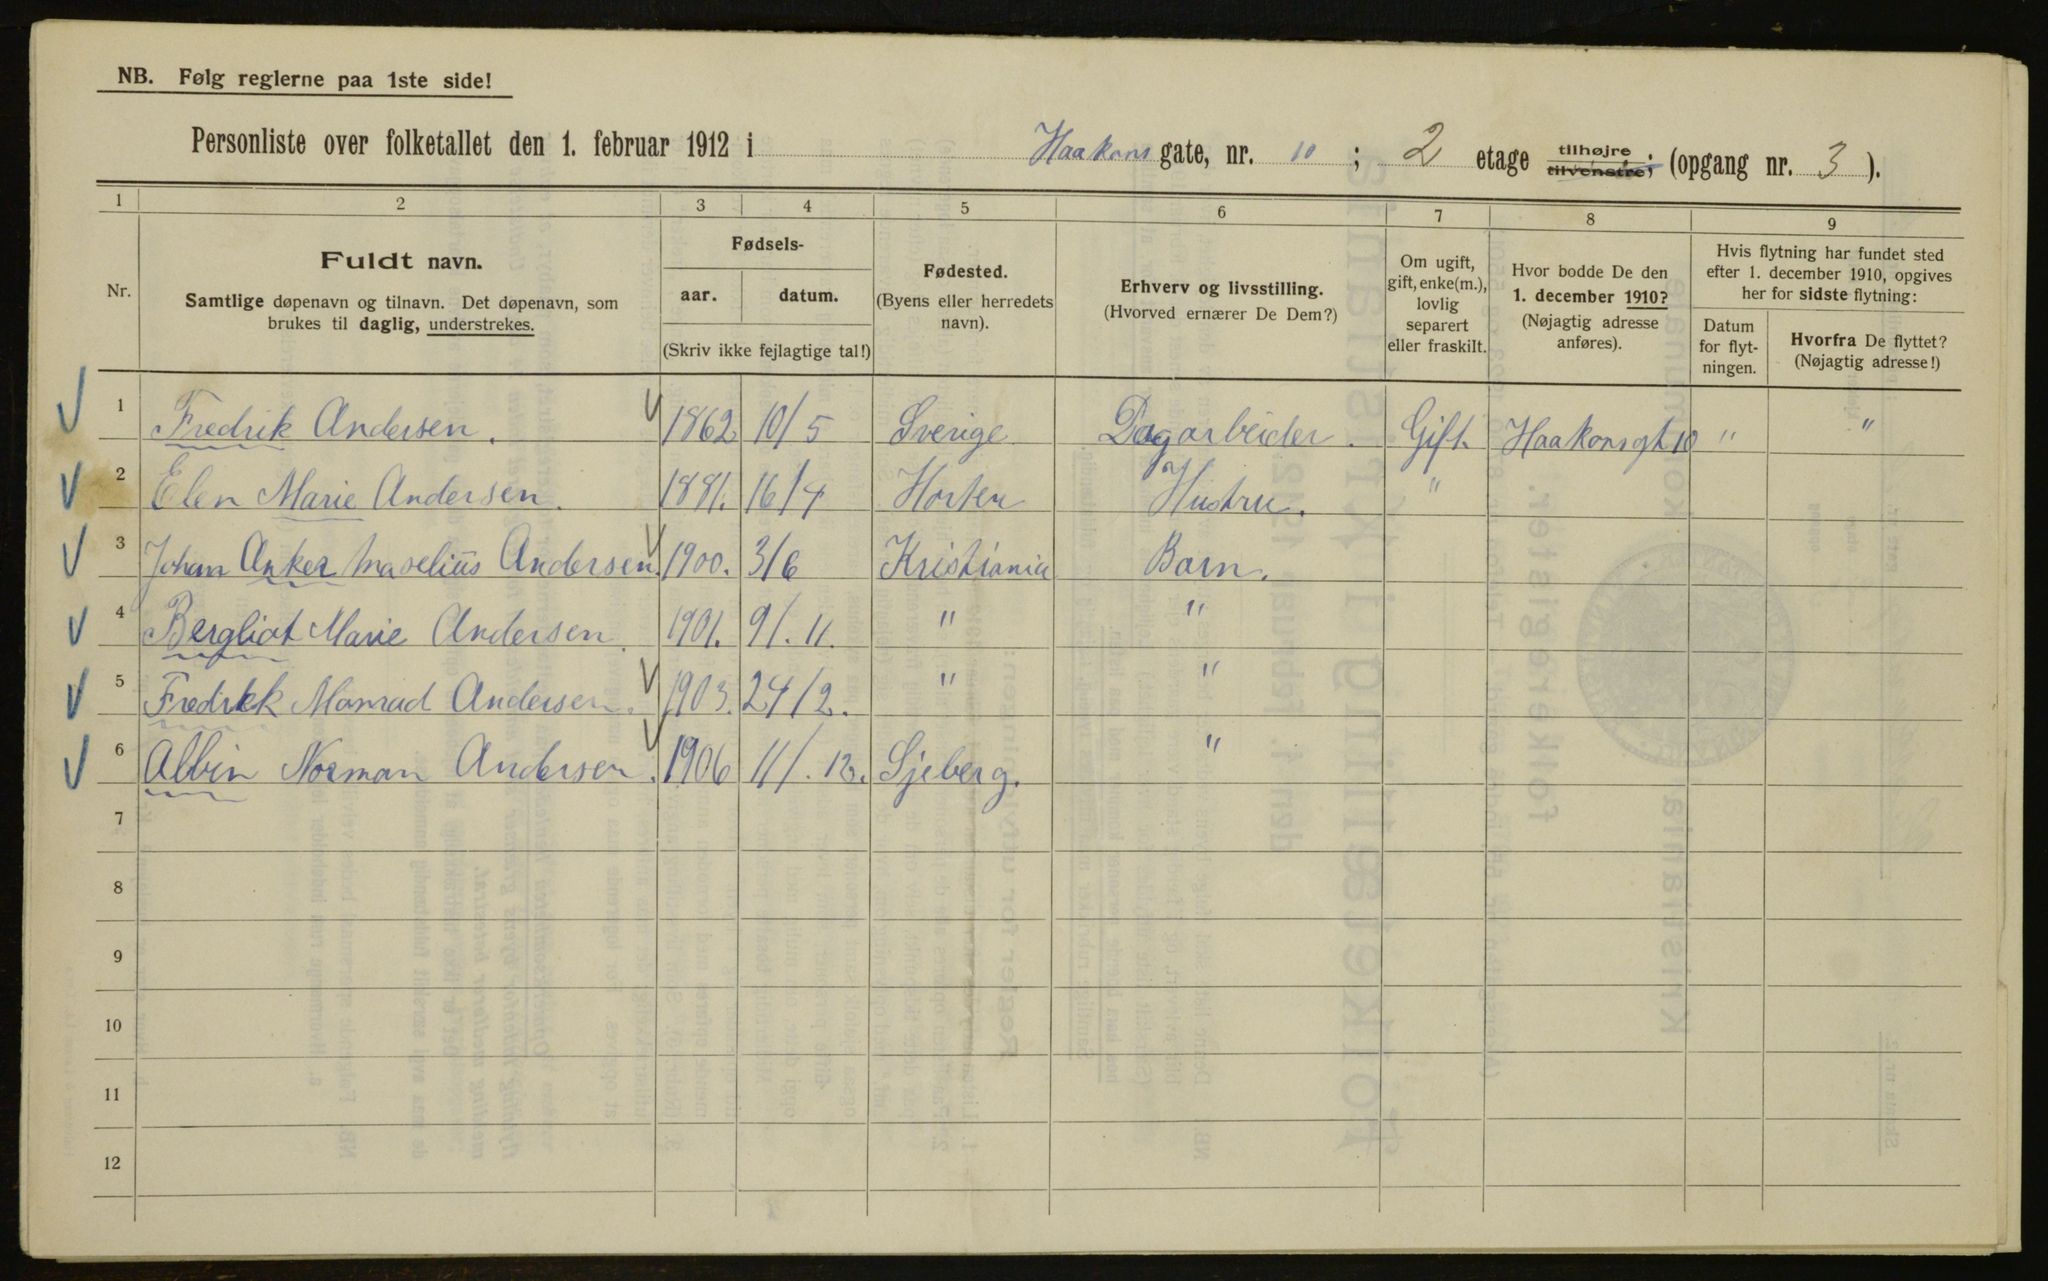 NB. Følg reglerne paa 1ste side!
Personliste over folketallet den 1. februar 1912 i Haakons gate, nr. 10 ; 2 etage tilhøjre tilvenstre; (opgang nr. 3 ).
1 2 3 4 5 6 7 8 9
Nr.
Fuldt navn.
Samtlige døpenavn og tilnavn. Det døpenavn, som
brukes til daglig, understrekes.
Fødsels-
aar. datum.
(Skriv ikke fejlagtige tal!)
Fødested.
(Byens eller herredets
navn).
Erhverv og livsstilling.
(Hvorved ernærer De Dem?)
Om ugift,
gift, enke(m.),
lovlig
separert
eller fraskilt.
Hvor bodde De den
1. december 1910?
(Nøjagtig adresse
anføres).
Hvis flytning har fundet sted
efter 1. december 1910, opgives
her for sidste flytning:
Datum
for flyt-
ningen.
Hvorfra De flyttet?
(Nøjagtig adresse!)
1 Fredrik Andersen. 1862 10/5 Sverige Dagarbeider. Gift. Haakonsgt 10 " "
2 Elen Marie Andersen. 1881. 16/4 Horten Hustru. "
3 Johan Anker Andersen. 1900. 3/6 Kristiania Barn.
4 Bergliot Marie Andersen. 1901. 9/. 11. " "
5 Fredrik Monrad Andersen. 1903. 24/2. " "
6 Albin Norman Andersen. 1906 11/. 12. Sjeberg. "
7
8
9
10
11
12